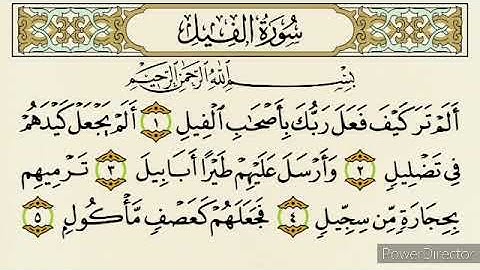 سُورَةُ الفِيلِ
بِسْمِ اللَّهِ الرَّحْمَٰنِ الرَّحِيمِ
أَلَمْ تَرَ كَيْفَ فَعَلَ رَبُّكَ بِأَصْحَٰبِ ٱلْفِيلِ ١ أَلَمْ يَجْعَلْ كَيْدَهُمْ
فِي تَضْلِيلٍ ٢ وَأَرْسَلَ عَلَيْهِمْ طَيْرًا أَبَابِيلَ ٣ تَرْمِيهِم
بِحِجَارَةٍ مِّن سِجِّيلٍ ٤ فَجَعَلَهُمْ كَعَصْفٍ مَّأْكُولٍ ٥
PowerDirector